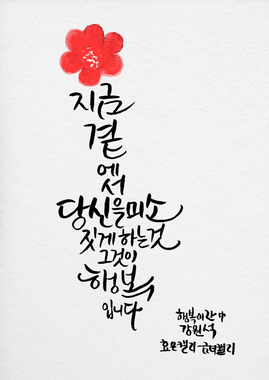 지금
곁
에서
당신을미소
짓게 하는것
그것이
행복
입니다
행복이란 中
강원석